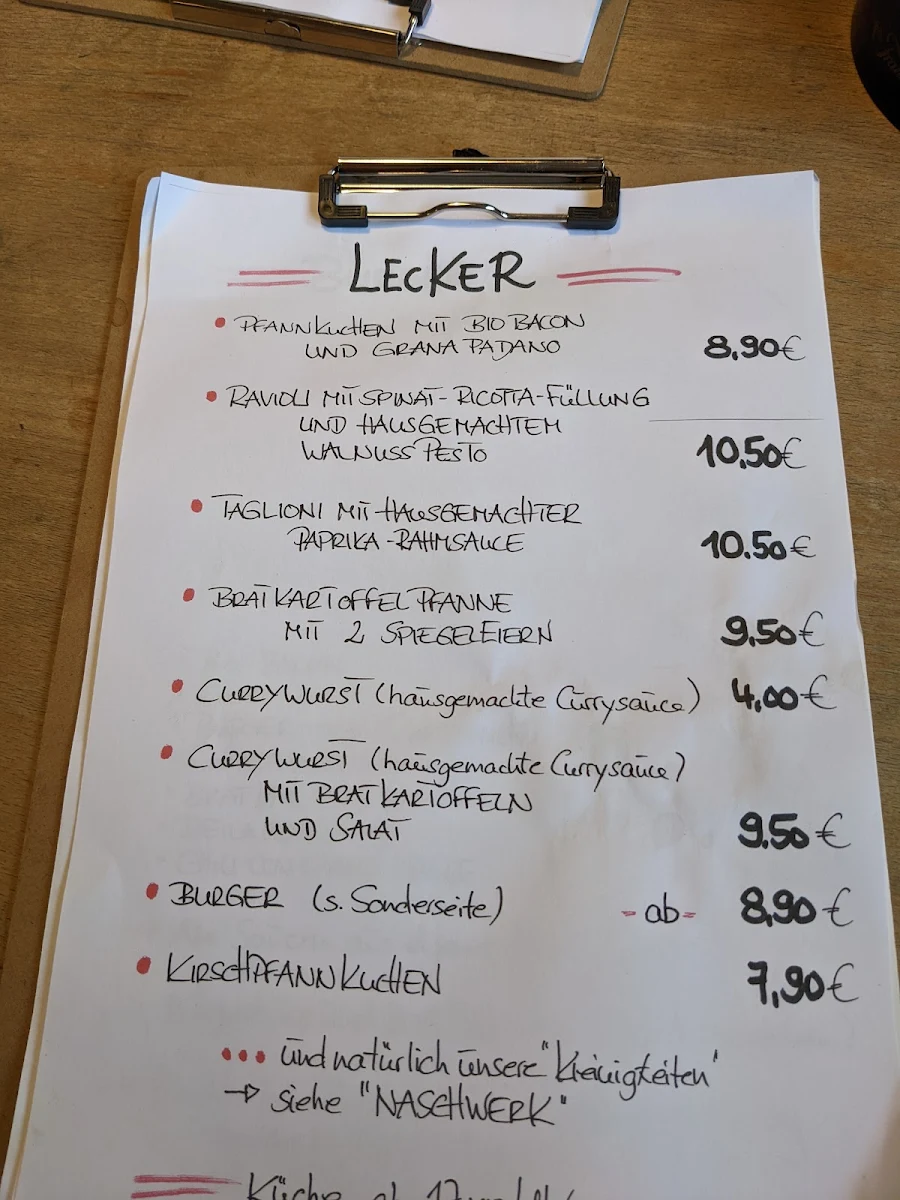 LECKER
• PFANNKUCHEN MIT BIO BACON
UND GRANA PADANO 8,90€
• RAVIOLI MIT SPINAT-RICOTTA-FÜLLUNG
UND HAUSGEMACHTEM
WALNUSS PESTO 10,50€
• TAGLIONI MIT HAUSGEMACHTER
PAPRIKA-RAHMSAUCE 10.50€
• BRATKARTOFFELPFANNE
MIT 2 SPIEGELEIERN 9,50€
• CURRYWURST (hausgemachte Currysauce) 4,00€
• CURRYWURST (hausgemachte Currysauce)
MIT BRATKARTOFFELN
UND SALAT 9.50€
• BURGER (s. Sonderseite) -ab- 8,90€
• KIRSCHPFANNKUCHEN 7,90€
••• und natürlich unsere "Kleinigkeiten"
→ siehe "NASCHWERK"
Küche